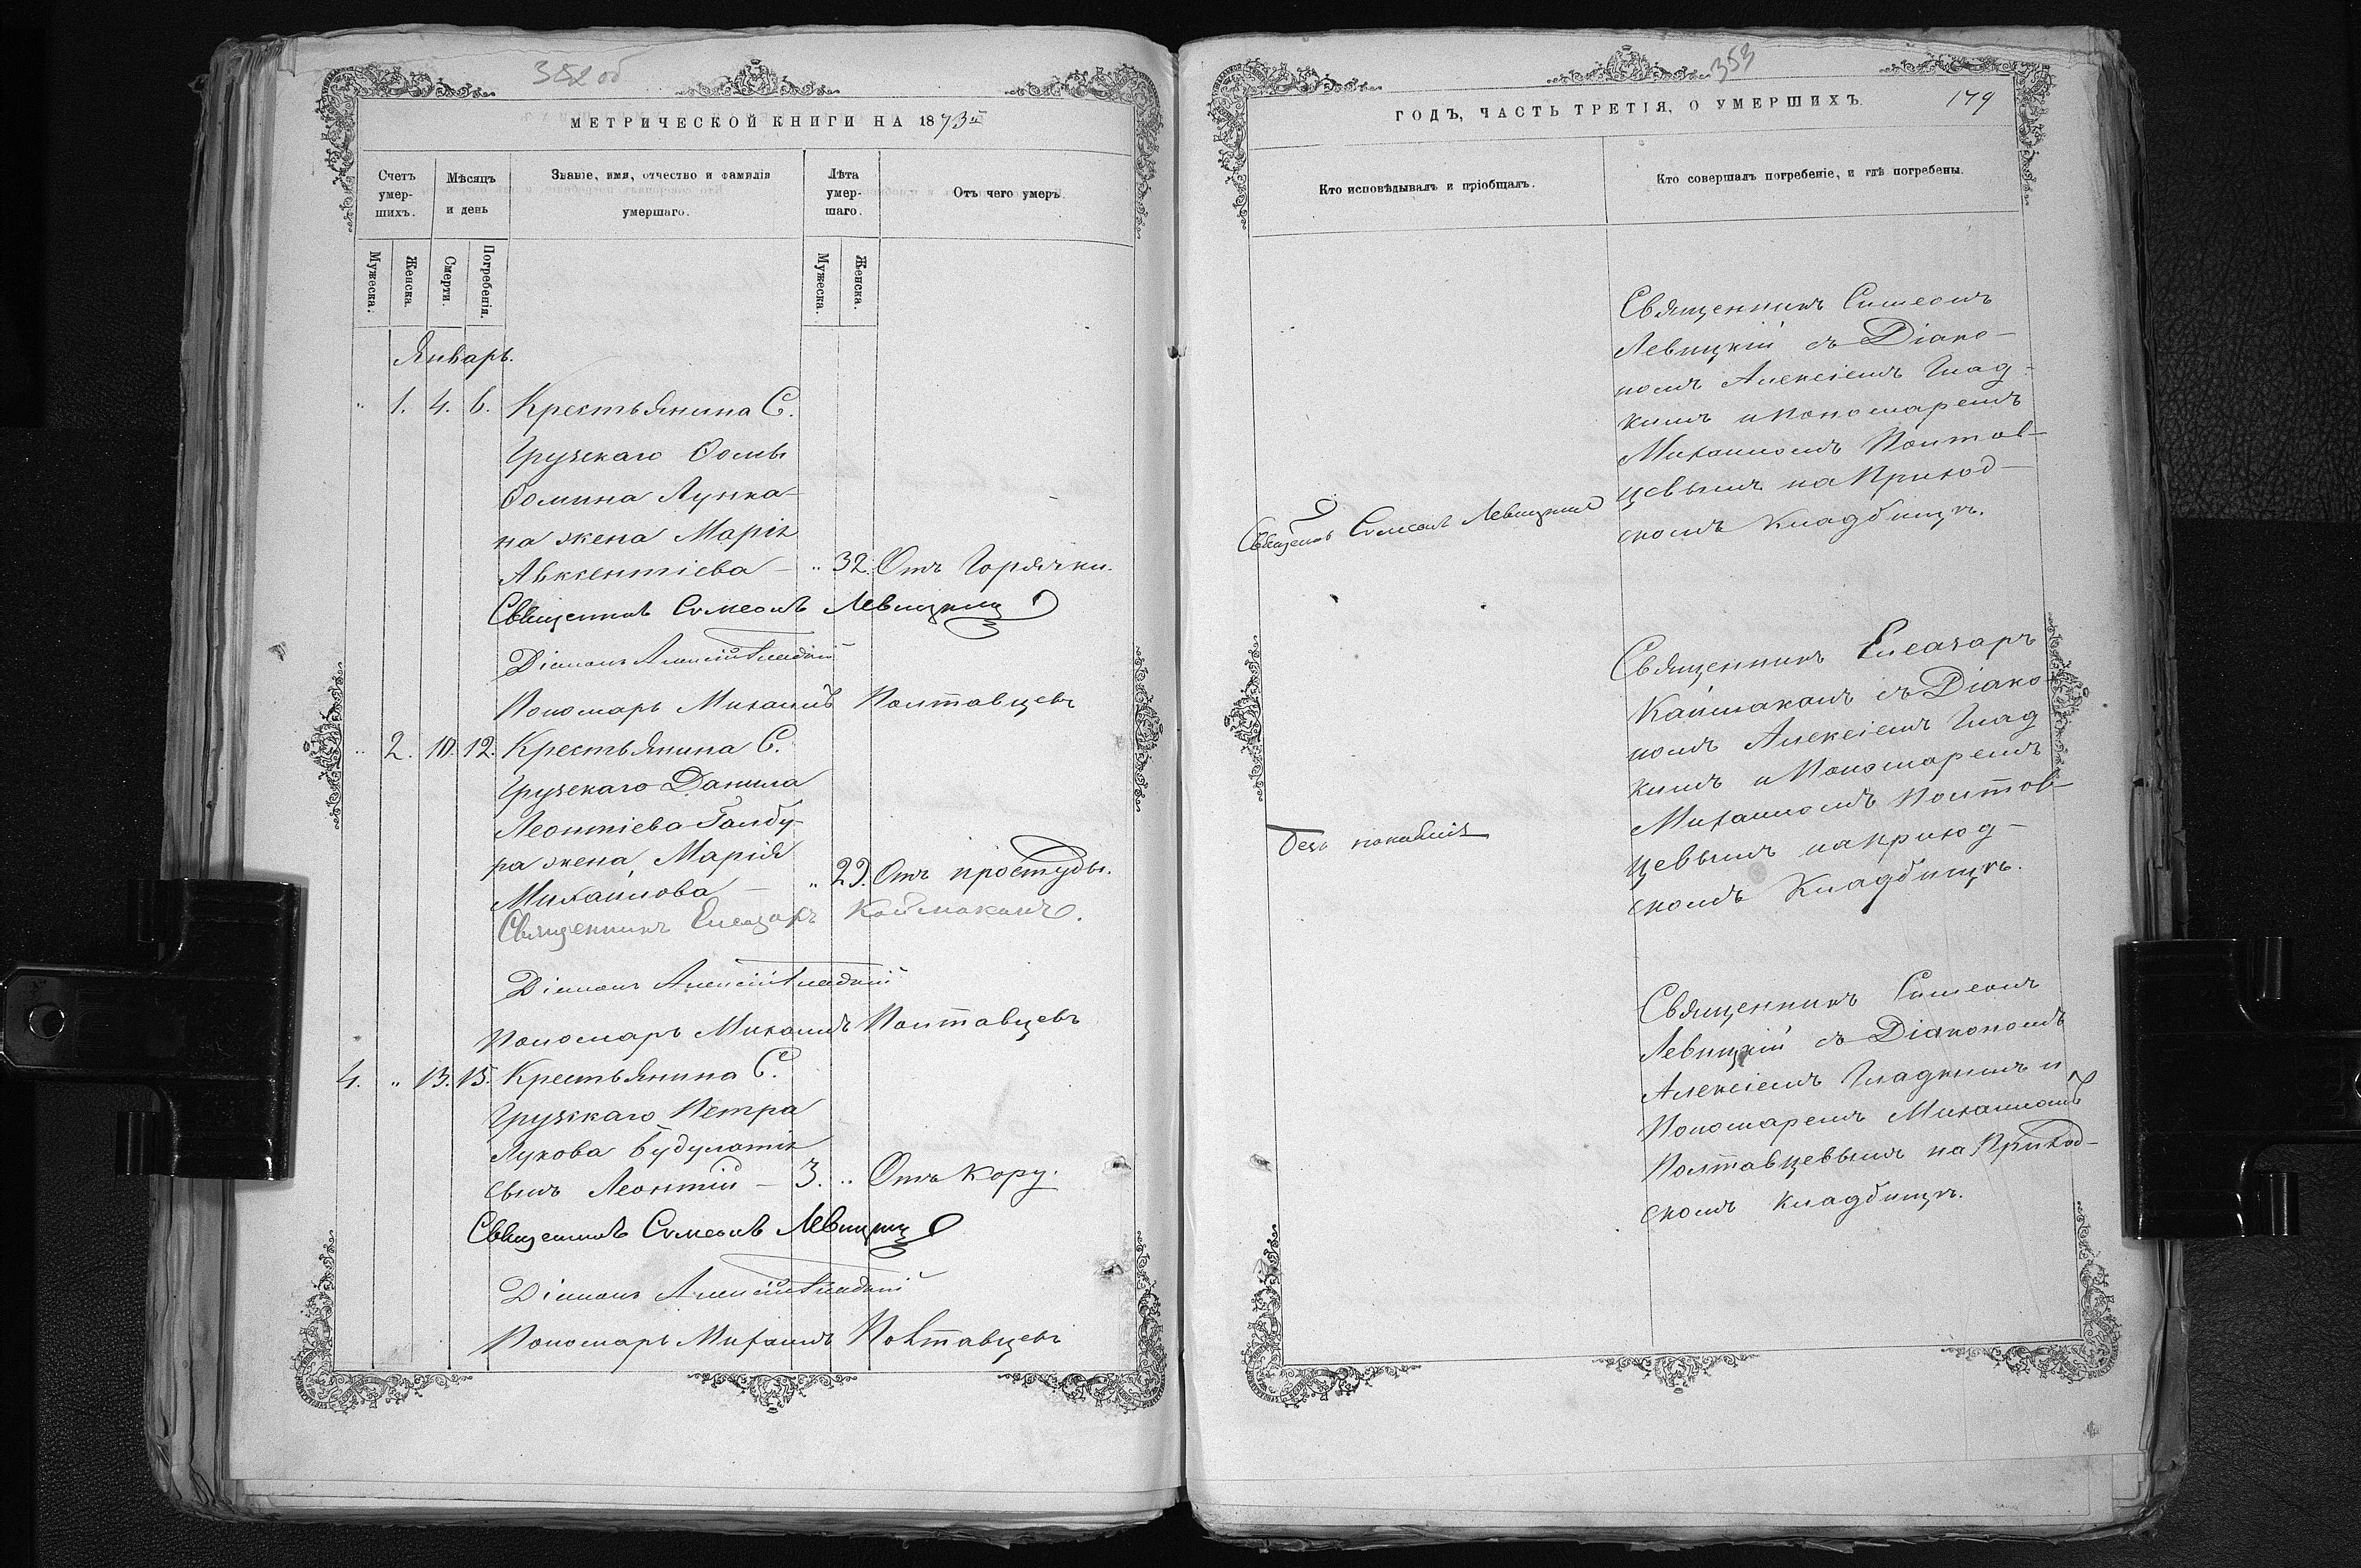 352 об
МЕТРИЧЕСКОЙ КНИГИ НА 1873й
Счетъ умер-
шихъ.
Мѣсяцъ
и день
Званіе, имя, отчество и фамилія
умершаго.
Лѣта
умер-
шаго.
Отъ чего умеръ.
Мужеска.
Женска.
Смерти.
Погребенія.
Мужеска.
Женска.
Январь.
" 1. 4. 6. Крестьянина С.
Грузскаго Ѳомы
Ѳомина Лунка-
на жена Марія
Авксентіева – " 32. Отъ Горячки.
Священникъ Симеонъ Левицкій
Діаконъ Алексій Гладкій
Пономарь Михаилъ Полтавцевъ
" 2. 10. 12. Крестьянина С.
Грузскаго Данила
Леонтіева Ганду-
ра жена Марія
Михаилова – " 29. Отъ простуды.
Священникъ Елеазаръ Каймаканъ.
Діаконъ Алексій Гладкій
Пономарь Михаилъ Полтавцевъ
4. " 13. 15. Крестьянина С.
Грузскаго Петра
Лукова
сынъ Леонтій – 3. " Отъ Кору.
Священникъ Симеонъ Левицкій
Діаконъ Алексій Гладкій
Пономарь Михаилъ Полтавцевъ
353
ГОДЪ, ЧАСТЬ ТРЕТІЯ, О УМЕРШИХЪ.
179
Кто исповѣдывалъ и пріобщалъ.
Кто совершалъ погребеніе, и гдѣ погребены.
Священникъ Симеонъ Левицкій
Священникъ Симеонъ
Левицкій съ Діако-
номъ Алексіемъ Глад-
кимъ и Пономаремъ
Михаиломъ Полтав-
цевымъ на Приход-
скомъ Кладбищѣ.
безъ покаянія
Священникъ Елеазаръ
Каймаканъ съ Діако-
номъ Алексіемъ Глад
кимъ и Пономаремъ
Михаиломъ Полтав-
цевымъ на приход-
скомъ Кладбищѣ.
Священникъ Симеонъ
Левицкій съ Діакономъ
Алексіемъ Гладкимъ и
Пономаремъ Михаиломъ
Полтавцевымъ на Приход-
скомъ кладбищѣ.